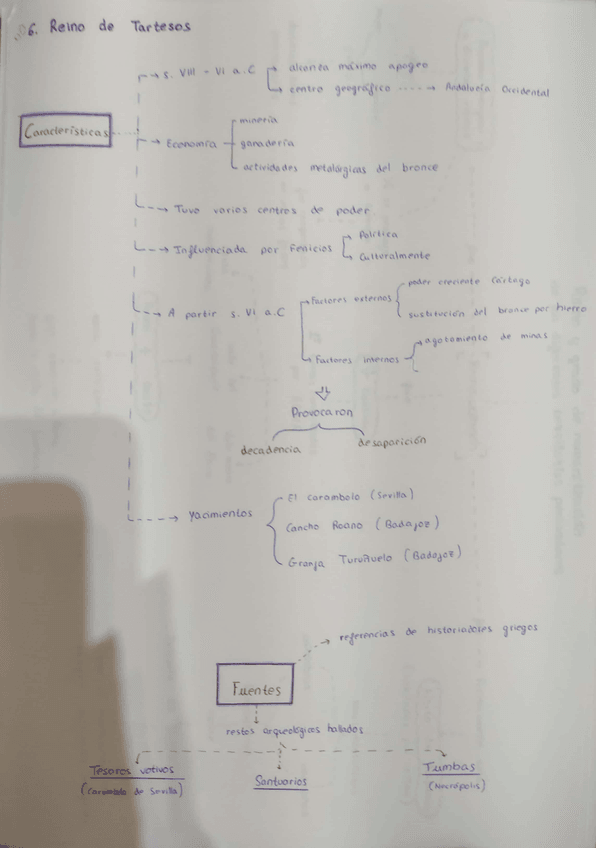 6. Reino de Tartesos
s. VIII - VI a.C
alcanza máximo apogeo
centro geográfico
Andalucía Occidental
Características
Economía
minería
ganadería
actividades metalúrgicas del bronce
Tuvo varios centros de poder
Influenciada por Fenicios
Política
Culturalmente
A partir s. VI a.C
Factores externos
poder creciente Cártago
sustitución del bronce por hierro
Factores internos
agotamiento de minas
Provocaron
decadencia
desaparición
Yacimientos
El Carambolo (Sevilla)
Cancho Roano (Badajoz)
Granja Turuñuelo (Badajoz)
referencias de historiadores griegos
Fuentes
restos arqueológicos hallados
Tesoros votivos
(Carambolo de Sevilla)
Santuarios
Tumbas
(Necrópolis)